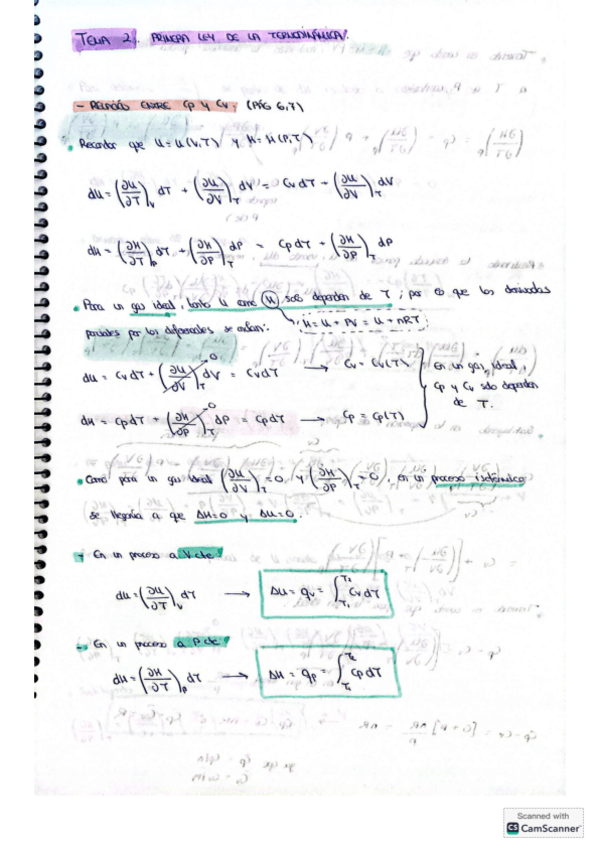 TEMA 2. PRIMERA LEY DE LA TERMODINÁMICA.
- RELACIÓN ENTRE Cp y Cv. (PÁG 6,7)
• Recordar que U = U(V,T) y H = H(P,T)
dU = (∂U/∂T)_V dT + (∂U/∂V)_T dV = Cv dT + (∂U/∂V)_T dV
dH = (∂H/∂T)_P dT + (∂H/∂P)_T dP = Cp dT + (∂H/∂P)_T dP
• Para un gas ideal, tanto U como H, solo dependen de T; por eso que las derivadas
parciales por los diferenciales se anulan:
H = U + PV = U + nRT
dU = Cv dT + (∂U/∂V)_T dV = Cv dT → Cv = Cv(T)
0
En un gas ideal
Cp y Cv solo dependen
de T.
dH = Cp dT + (∂H/∂P)_T dP = Cp dT → Cp = Cp(T)
0
• Como para un gas ideal (∂U/∂V)_T = 0 y (∂H/∂P)_T = 0, en un proceso isotérmico
se llegaría a que ΔH=0 y ΔU=0.
- En un proceso a V cte:
dU = (∂U/∂T)_V dT → ΔU = qv = ∫_T1^T2 Cv dT
- En un proceso a P cte:
dH = (∂H/∂T)_P dT → ΔH = qp = ∫_T1^T2 Cp dT
Scanned with
CS CamScanner